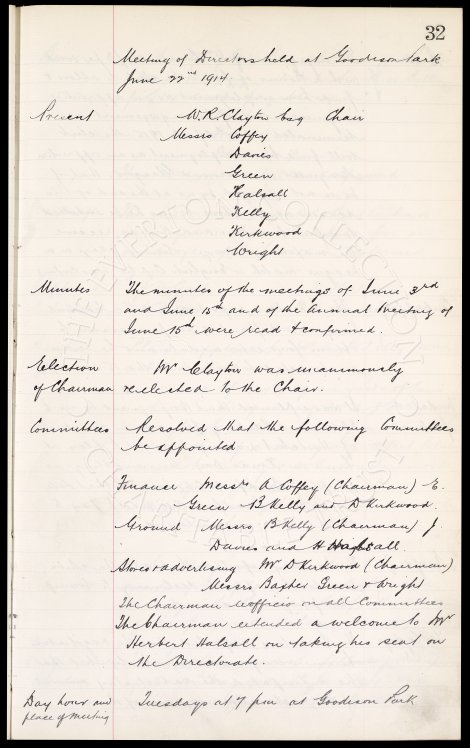 32
Meeting of Directors held at Goodison Park
June 22nd 1914
Present W.R. Clayton Esq Chair
Messrs Coffey
Davies
Green
Halsall
Kelly
Kirkwood
Wright
Minutes The minutes of the meetings of June 3rd
and June 15th and of the Annual Meeting of
June 15th were read & confirmed.
Election Mr Clayton was unanimously
of Chairman re-elected to the Chair.
Committees Resolved that the following Committees
be appointed
Finance Messrs A Coffey (Chairman) E.
Green B Kelly and D Kirkwood.
Ground Messrs B Kelly (Chairman) J.
Davies and H Halsall.
Stores & advertising Mr D Kirkwood (Chairman)
Messrs Baxter Green & Wright
The Chairman exofficio on all Committees
The Chairman extended a welcome to Mr
Herbert Halsall on taking his seat on
the Directorate.
Day hour and Tuesdays at 7 pm at Goodison Park
place of meeting
THE EVERTON COLLECTION
CHARITABLE TRUST